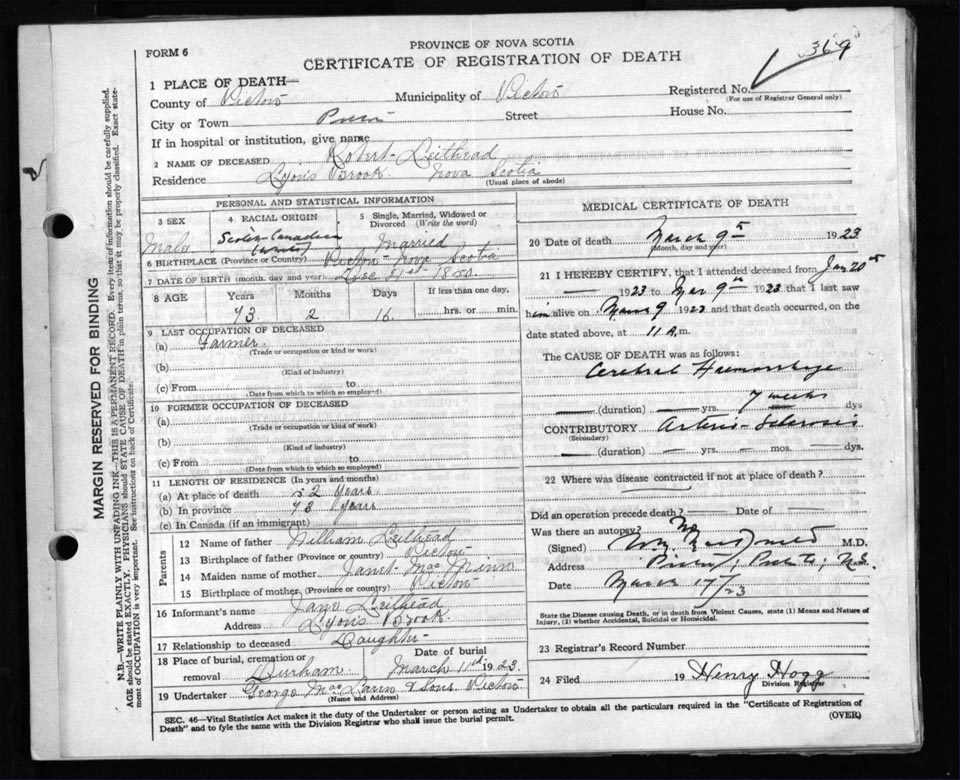 369
PROVINCE OF NOVA SCOTIA
FORM 6
CERTIFICATE OF REGISTRATION OF DEATH
1 PLACE OF DEATH—
Registered No.
(For use of Registrar General only)
County of Pictou Municipality of Pictou
City or Town Street House No.
If in hospital or institution, give name
2 NAME OF DECEASED Robert Leithead
Residence Lyons Brook Nova Scotia
(Usual place of abode)
PERSONAL AND STATISTICAL INFORMATION
3 SEX 4 RACIAL ORIGIN 5 Single, Married, Widowed or Divorced (Write the word)
Male Scotch-Canadian Married
6 BIRTHPLACE (Province or Country) Pictou Nova Scotia
7 DATE OF BIRTH (month, day and year) Dec
8 AGE Years Months Days If less than one day,
73 2 16 hrs. or min.
9 LAST OCCUPATION OF DECEASED
(a) Farmer
(Trade or occupation or kind of work)
(b)
(Kind of industry)
(c) From to
(Date from which to which so employed)
10 FORMER OCCUPATION OF DECEASED
(a)
(Trade or occupation or kind of work)
(b)
(Kind of industry)
(c) From to
(Date from which to which so employed)
11 LENGTH OF RESIDENCE (In years and months)
(a) At place of death 52 Years
(b) In province 73 years
(c) In Canada (if an immigrant)
Parents
12 Name of father William Leithead
13 Birthplace of father (Province or country) Pictou
14 Maiden name of mother Janet
15 Birthplace of mother (Province or country) Pictou
16 Informant's name Leithead
Address Lyons Brook
17 Relationship to deceased Daughter
18 Place of burial, cremation or removal Durham Date of burial March 11th 1923
19 Undertaker George MacLaren & Sons Pictou
(Name and Address)
MEDICAL CERTIFICATE OF DEATH
20 Date of death March 9th 1923
(Month, day and year)
21 I HEREBY CERTIFY, that I attended deceased from Jan 20th
— 1923 to Mar 9th 1923 that I last saw
him alive on Mar 9 1923 and that death occurred, on the
date stated above, at 11 a.m.
The CAUSE OF DEATH was as follows:
Cerebral Haemorrhage
(duration) — yrs. 7 weeks dys
CONTRIBUTORY Arterio-Sclerosis
(Secondary)
(duration) yrs. mos. dys.
22 Where was disease contracted if not at place of death?
Did an operation precede death? — Date of —
Was there an autopsy? No
(Signed) M.D.
Address Pictou, N.S.
Date March 17/23
State the Disease causing Death, or in death from Violent Causes, state (1) Means and Nature of
Injury, (2) whether Accidental, Suicidal or Homicidal.
23 Registrar's Record Number
24 Filed 19 Henry Hogg
Division Registrar
SEC. 46—Vital Statistics Act makes it the duty of the Undertaker or person acting as Undertaker to obtain all the particulars required in the "Certificate of Registration of
Death" and to fyle the same with the Division Registrar who shall issue the burial permit.
(OVER)
MARGIN RESERVED FOR BINDING
N.B.—WRITE PLAINLY WITH UNFADING INK—THIS IS A PERMANENT RECORD. Every item of information should be carefully supplied.
AGE should be stated EXACTLY. PHYSICIANS should STATE CAUSE OF DEATH in plain terms, so that it may be properly classified. Exact state-
ment of OCCUPATION is very important. See instructions on back of Certificate.